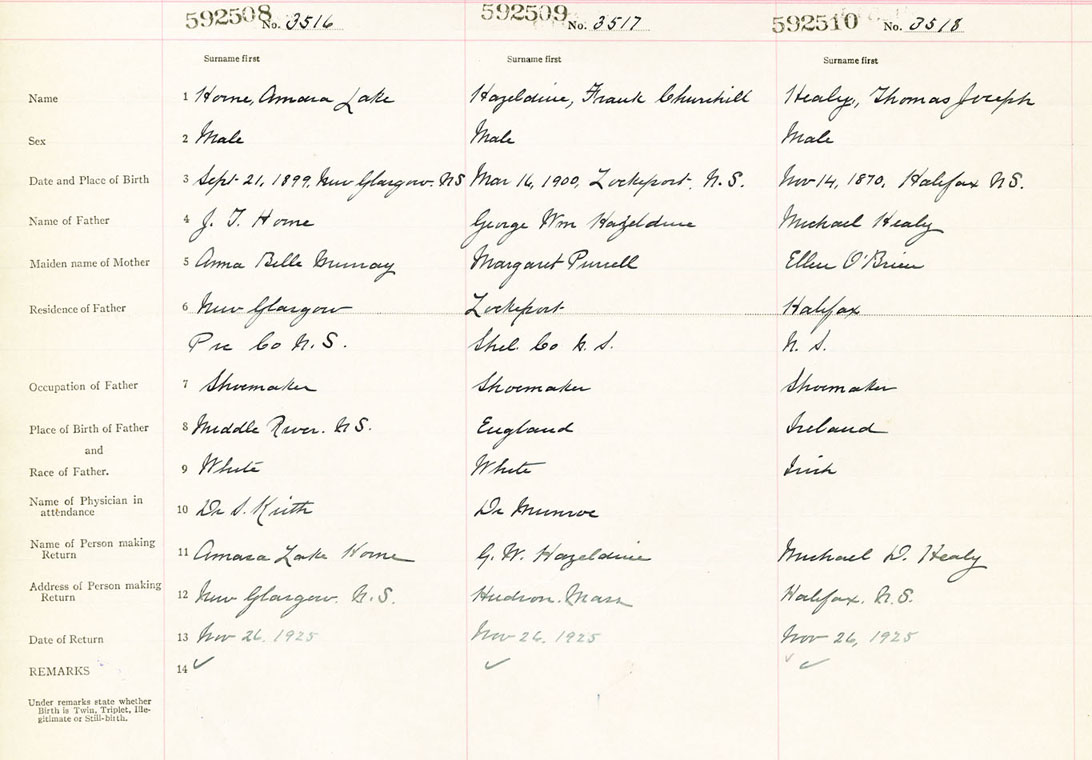 592508 No. 3516 592509 No. 3517 592510 No. 3518
Surname first Surname first Surname first
Name 1 Horne, Amasa Lake Hazeldine, Frank Churchill Healy, Thomas Joseph
Sex 2 Male Male Male
Date and Place of Birth 3 Sept 21, 1899, New Glasgow. NS Mar 16, 1900, Lockeport, N.S. Nov 14, 1870, Halifax NS.
Name of Father 4 J. T. Horne George Wm Hazeldine Michael Healy
Maiden name of Mother 5 Anna Belle Murray Margaret Purcell Ellen O'Brien
Residence of Father 6 New Glasgow Lockeport Halifax
Co N.S. Shel. Co N.S. N.S.
Occupation of Father 7 Shoemaker Shoemaker Shoemaker
Place of Birth of Father 8 Middle River. N.S. England Ireland
and
Race of Father. 9 White White Irish
Name of Physician in
attendance 10 Dr S. Keith Dr Munroe
Name of Person making
Return 11 Amasa Lake Horne G. W. Hazeldine Michael D. Healy
Address of Person making
Return 12 New Glasgow. N.S. Hudson. Mass Halifax. N.S.
Date of Return 13 Nov 26, 1925 Nov 26, 1925 Nov 26, 1925
REMARKS 14 ✓ ✓ ✓ ✓
Under remarks state whether
Birth is Twin, Triplet, Ille-
gitimate or Still-birth.